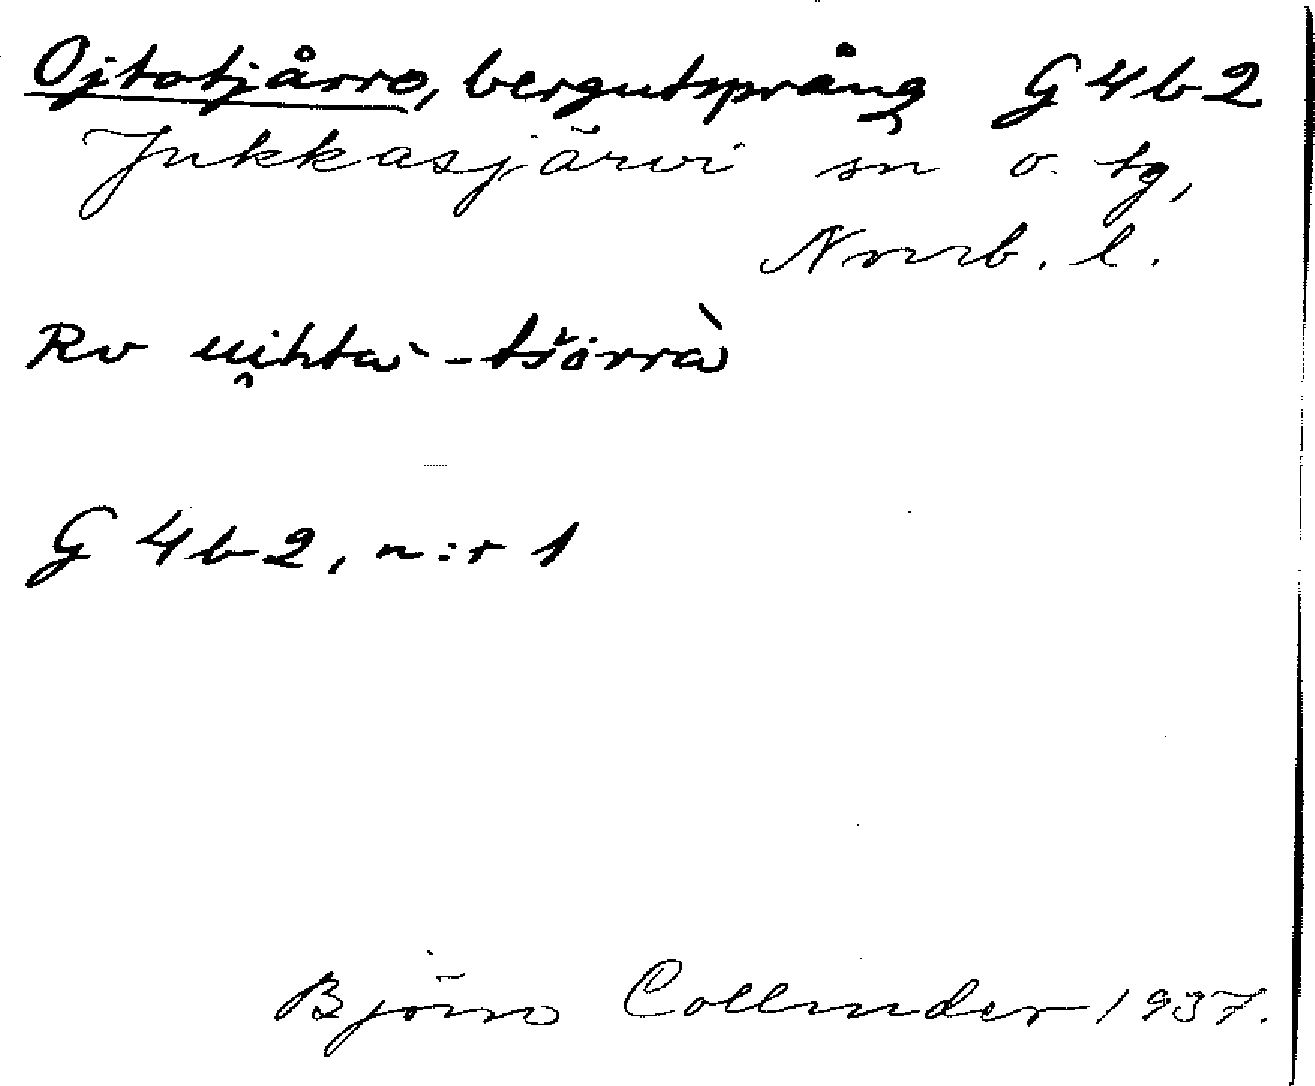 Ojtotjårro, bergutsprång G4b2
Jukkasjärvi sn o. tg,
Norrb. l.
Rv ui̯hta` -tšȯrrà
G 4b2, n:r 1
Björn Collinder 1937.